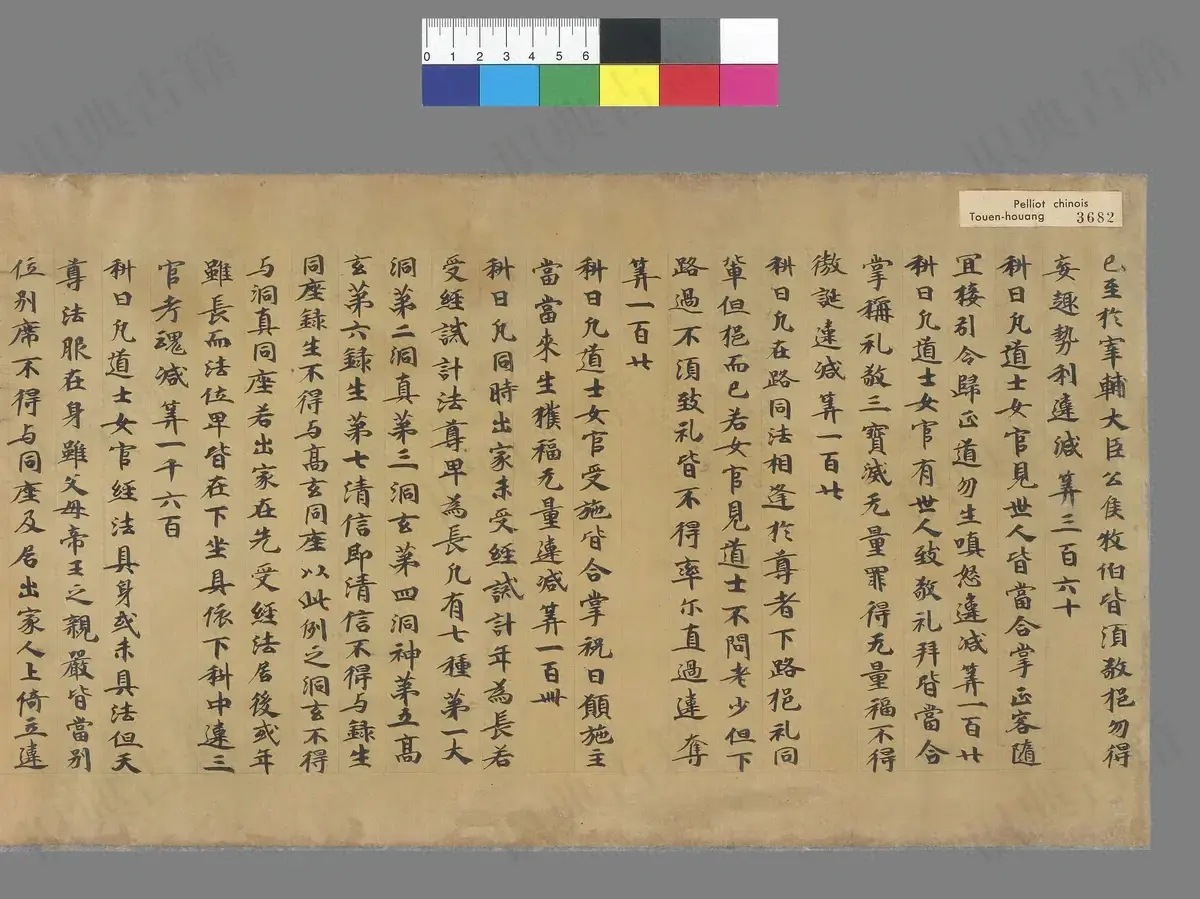 0 1 2 3 4 5 6
Pelliot chinois
Touen-houang 3682
已至於宰輔大臣公侯牧伯皆須敬挹勿得
妄趣勢利違減筭三百六十
科曰凡道士女官見世人皆當合掌正容隨
冝接引令歸正道勿生嗔怒違減筭一百廿
科曰凡道士女官有世人致敬礼拜皆當合
掌稱礼敬三寶滅无量罪得无量福不得
傲誕違減筭一百廿
科曰凡在路同法相逢於尊者下路挹礼同
軰但挹而已若女官見道士不問老少但下
路過不須致礼皆不得率尓直過違奪
筭一百廿
科曰凡道士女官受施皆合掌祝曰願施主
當當來生獲福无量違減筭一百卌
科曰凡同時出家未受經試計年為長若
受經試計法尊卑為長凡有七種第一大
洞第二洞真第三洞玄第四洞神第五高
玄第六錄生第七清信即清信不得与錄生
同座錄生不得与高玄同座以此例之洞玄不得
与洞真同座若出家在先受經法居後或年
雖長而法位卑皆在下坐具依下科中違三
官考魂減筭一千六百
科曰凡道士女官經法具身或未具法但天
尊法服在身雖父母帝王之親嚴皆當別
位別席不得与同座及居出家人上倚立違